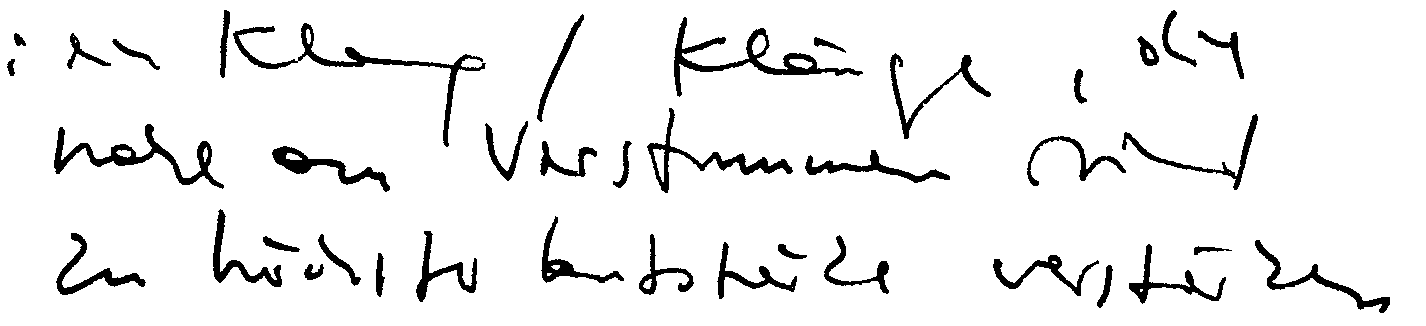 : ein Klang / Klänge, die
nahe am Verstummen sind
zu höchster Lautstärke verstärken